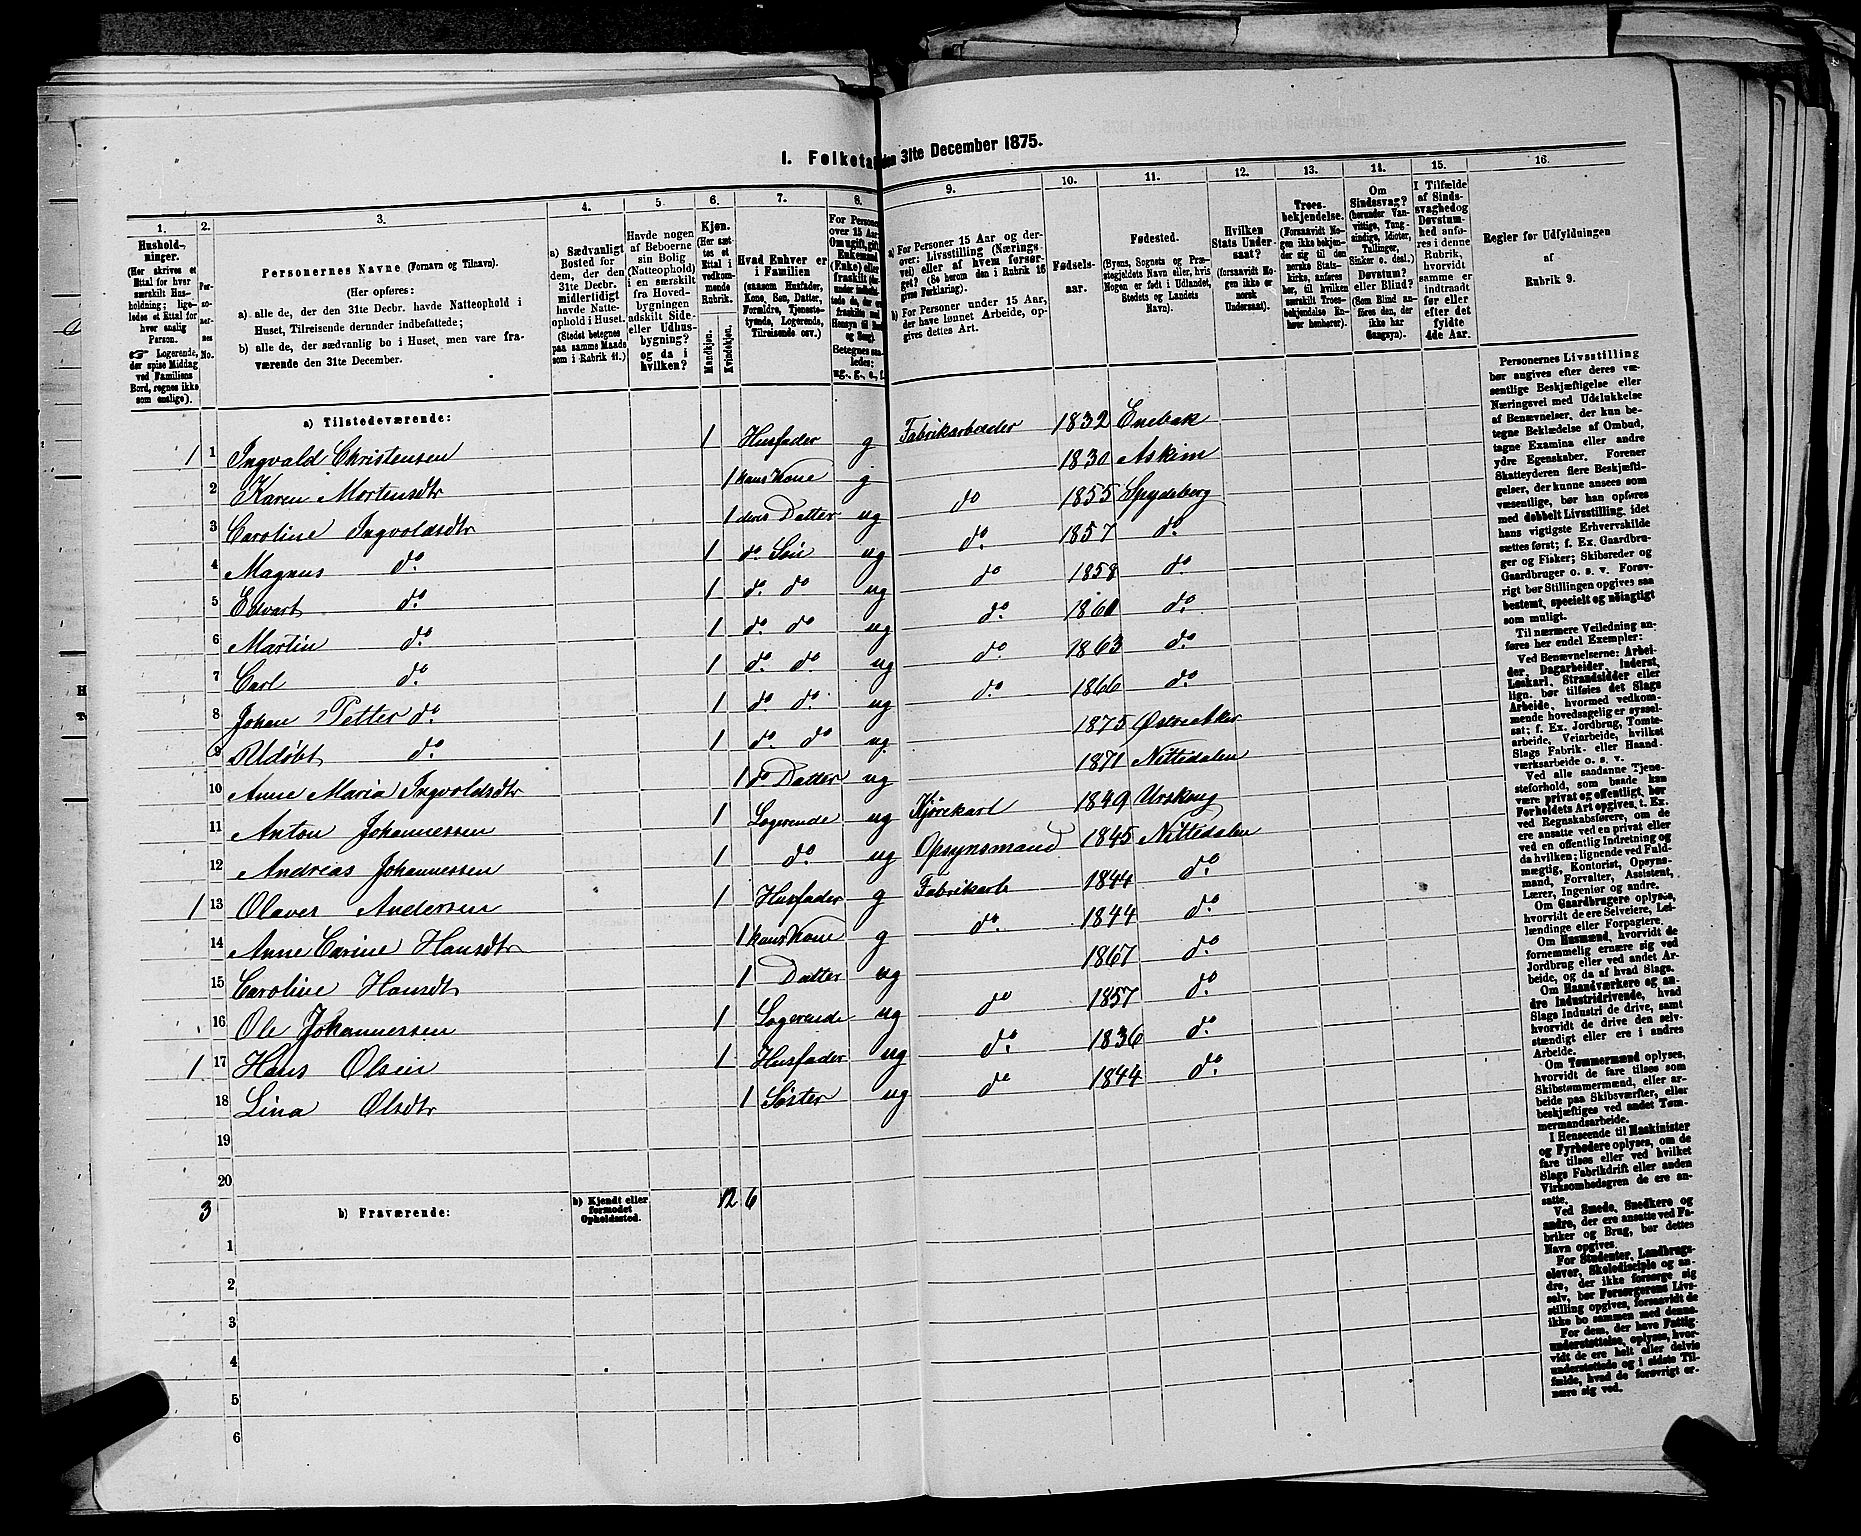 I. Folketal den 31te December 1875.
1. 2. 3. 4. 5. 6. 7. 8. 9. 10. 11. 12. 13. 14. 15. 16.
Hushold-
ninger.
(Her skrives et
Ettal for hver
særskilt Hus-
holdning; lige-
ledes et Ettal for
hver enslig
Person.
☞ Logerende,
der spise Middag
ved Familiens
Bord, regnes ikke
som enslige).
Per-
so-
ner-
nes
No.
Personernes Navne (Fornavn og Tilnavn).
(Her opføres:
a) alle de, der den 31te Decbr. havde Natteophold i
Huset, Tilreisende derunder indbefattede;
b) alle de, der sædvanlig bo i Huset, men vare fra-
værende den 31te December.
a) Sædvanligt
Bosted for
dem, der den
31te Decbr.
midlertidigt
havde Natte-
ophold i Huset.
(Stedet betegnes
paa samme Maade
som i Rubrik 11.)
Havde nogen
af Beboerne
sin Bolig
(Natteophold)
i en særskilt
fra Hoved-
bygningen
adskilt Side-
eller Udhus-
bygning?
og da i
hvilken?
Kjøn.
(Her sæt-
tes et
Ettal i
vedkom-
mende
Rubrik.
Mandkjøn.
Kvindekjøn.
Hvad Enhver er
i Familien
(saasom Husfader,
Kone, Søn, Datter,
Forældre, Tjeneste-
tyende, Logerende,
Tilreisende osv.)
For Personer
over 15 Aar:
Om ugift, gift,
Enkemand
(Enke) eller
fraskilt
Betegnes saa-
ledes:
ug., g., e., f.
a) For Personer 15 Aar og der-
over: Livsstilling (Nærings-
vei) eller af hvem forsør-
get? (Se herom den i Rubrik 16
givne Forklaring).
b) For Personer under 15 Aar,
der have lønnet Arbeide, op-
gives dettes Art.
Fødsels-
aar.
Fødested.
(Byens, Sognets og Præ-
stegjeldets Navn eller, hvis
Nogen er født i Udlandet,
Stedets og Landets
Navn).
Hvilken
Stats Under-
saat?
(forsaavidt No-
gen ikke er
norsk
Undersaat).
Troes-
bekjendelse.
(Forsaavidt No-
gen ikke bekjen-
der sig til den
norske Stats-
kirke, anføres
her, til hvilken
særskilt Troes-
bekjendelse En-
hver henhører).
Om
Sindssvag?
(herunder Van-
vittige, Tung-
sindige, Idioter,
Tullinger,
Sinker o. desl.)
Døvstum?
eller Blind?
(Som Blind an-
føres den, der
ikke har
Gangsyn).
I Tilfælde
af Sinds-
svaghed og
Døvstum-
hed anfø-
res i denne
Rubrik,
hvorvidt
samme er
indtraadt
før eller
efter det
fyldte
4de Aar.
Regler for Udfyldningen
af
Rubrik 9.
a) Tilstedeværende:
1 1 Ingvald Christensen 1 Husfader g Fabrikarbeider 1832 Enebak
2 Karen Mortensdtr 1 hans Kone g 1830 Askim
3 Caroline Ingvoldsdtr 1 deres Datter ug do 1855 Spydeberg
4 Magnus do. 1 do. Søn ug do. 1857 do.
5 Edvart do. 1 do. do ug do 1858 do.
6 Martin do. 1 do. do ug do. 1861 do.
7 Carl do. 1 do. do ug do 1863 do.
8 Johan Petter do. 1 do. do. ug do. 1866 do.
9 Udøbt do. 1 do. do ug 1875 Østre Aker
10 Anne Maria Ingvoldsdtr 1 do Datter ug 1871 Nittedalen
11 Anton Johannessen 1 Logerende ug Kjørekarl 1849 Urskoug
12 Andreas Johannessen 1 do. ug Opsynsmand 1845 Nittedalen
1 13 Olaves Andersen 1 Husfader g Fabrikarb 1844 do.
14 Anne Carine Hansdtr 1 hans Kone g do. 1844 do.
15 Caroline Hansdtr 1 Datter ug 1867 do.
16 Ole Johannessen 1 Logerende ug do 1857 do.
1 17 Hans Olsen 1 Husfader ug do. 1836 do.
18 Lina Olsdtr 1 Søster ug do 1844 do.
19
20
3 b) Fraværende: b) Kjendt eller
formodet
Opholdssted. 12 6
1
2
3
4
5
6
Personernes Livsstilling
bør angives efter deres væ-
sentlige Beskjæftigelse eller
Næringsvei med Udelukkelse
af Benævnelser, der kun be-
tegne Beklædelse af Ombud,
tagne Examina eller andre
ydre Egenskaber. Forener
Skatteyderen flere Beskjæfti-
gelser, der kunne ansees som
væsentlige, bør han opføres
med dobbelt Livsstilling, idet
hans vigtigste Erhvervskilde
sættes først; f. Ex. Gaardbru-
ger og Fisker; Skibsreder og
Gaardbruger o. s. v. Forøv-
rigt bør Stillingen opgives saa
bestemt, specielt og nøiagtigt
som muligt.
Til nærmere Veiledning an-
føres her endel Exempler:
Ved Benævnelserne: Arbei-
der, Dagarbeider, Inderst,
Løskarl, Strandsidder eller
lign. bør tilføies det Slags
Arbeide, hvormed vedkom-
mende hovedsagelig er syssel-
sat; f. Ex. Jordbrug, Tomte-
arbeide, Veiarbeide, hvilket
Slags Fabrik- eller Haand-
værksarbeide o. s. v.
Ved alle saadanne Tjene-
steforhold, som baade kan
være privat og offentligt, bør
Forholdets Art opgives, t. Ex.
ved Regnskabsførere, om de
ere ansatte ved en privat eller
ved en offentlig Indretning og
da hvilken; lignende ved Fuld-
mægtig, Kontorist, Opsyns-
mand, Forvalter, Assistent,
Lærer, Ingeniør og andre.
Om Gaardbrugere oplyses,
hvorvidt de ere Selveiere, Lei-
lændinge eller Forpagtere.
Om Husmænd, hvorvidt de
fornemmelig ernære sig ved
Jordbrug eller ved andet Ar-
beide, og da af hvad Slags.
Om Haandværkere og an-
dre Industridrivende, hvad
Slags Industri de drive, samt
hvorvidt de drive den selv-
stændigt eller ere i andres
Arbeide.
Om Tømmermænd oplyses,
hvorvidt de fare tilsøs som
Skibstømmermænd, eller ar-
beide paa Skibsværfter, eller
beskjæftiges ved andet Tøm-
mermandsarbeide.
I Henseende til Maskinister
og Fyrbødere oplyses, om de
fare tilsøs eller ved hvilket
Slags Fabrikdrift eller anden
Virksomhedsgren de ere an-
satte.
Ved Smede, Snedkere og
andre, der ere ansatte ved Fa-
briker og Brug, bør dettes
Navn opgives.
For Studenter, Landbrugs-
elever, Skoledisciple og an-
dre, der ikke forsørge sig
selv, bør Forsørgerens Livs-
stilling opgives, forsaavidt de
ikke bo sammen med denne.
For dem, der have Fattig-
understøttelse, oplyses, hvor-
vidt de ere helt eller delvis
understøttede og i sidste Til-
fælde, hvad de forøvrigt er-
nære sig ved.